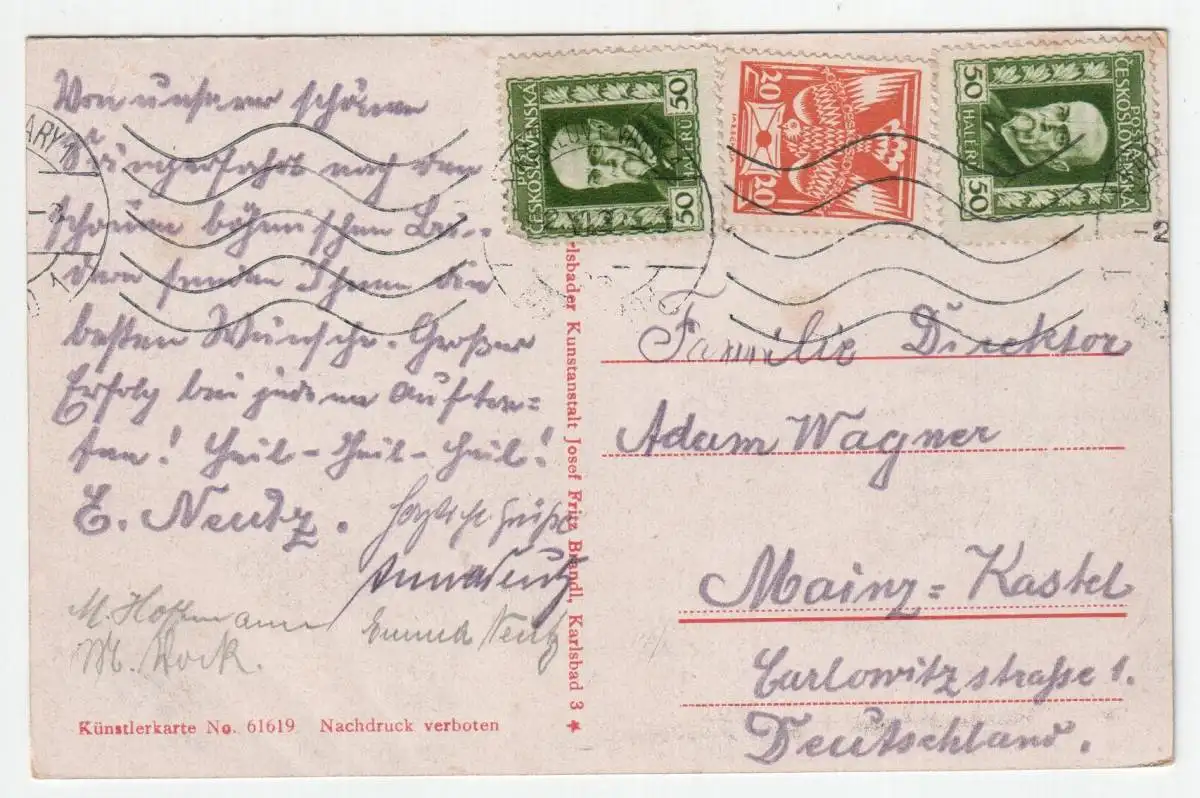 Von unserer schönen
Sängerfahrt nach den
schönen böhmischen Bä-
dern senden Ihnen die
besten Wünsche. Großen
Erfolg bei jedem Auftre-
ten! Heil-Heil-Heil!
E. Neutz.
Herzliche Grüße
Anna Neutz
M. Hoffmann
Emma Neutz
M. Dock.
Künstlerkarte No. 61619 Nachdruck verboten
lsbader Kunstanstalt Josef Fritz Brandl, Karlsbad 3
POŠTA
ČESKOSLOVENSKÁ
50 HALÉŘŮ 50
20 20
POŠTA
ČESKOSLOVENSKÁ
50 HALÉŘŮ 50
Familie Direktor
Adam Wagner
Mainz-Kastel
Carlowitzstraße 1.
Deutschland.